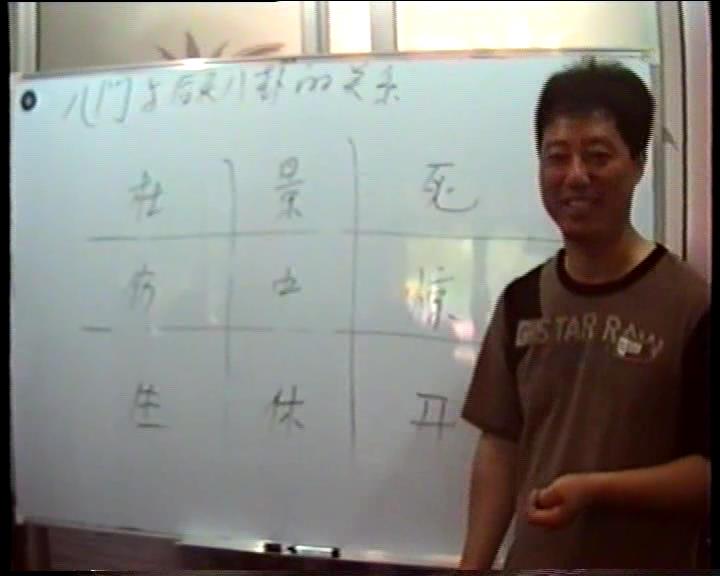 八门与后天八卦的关系
杜 景 死
伤 中 惊
生 休 开
G-STAR RAW